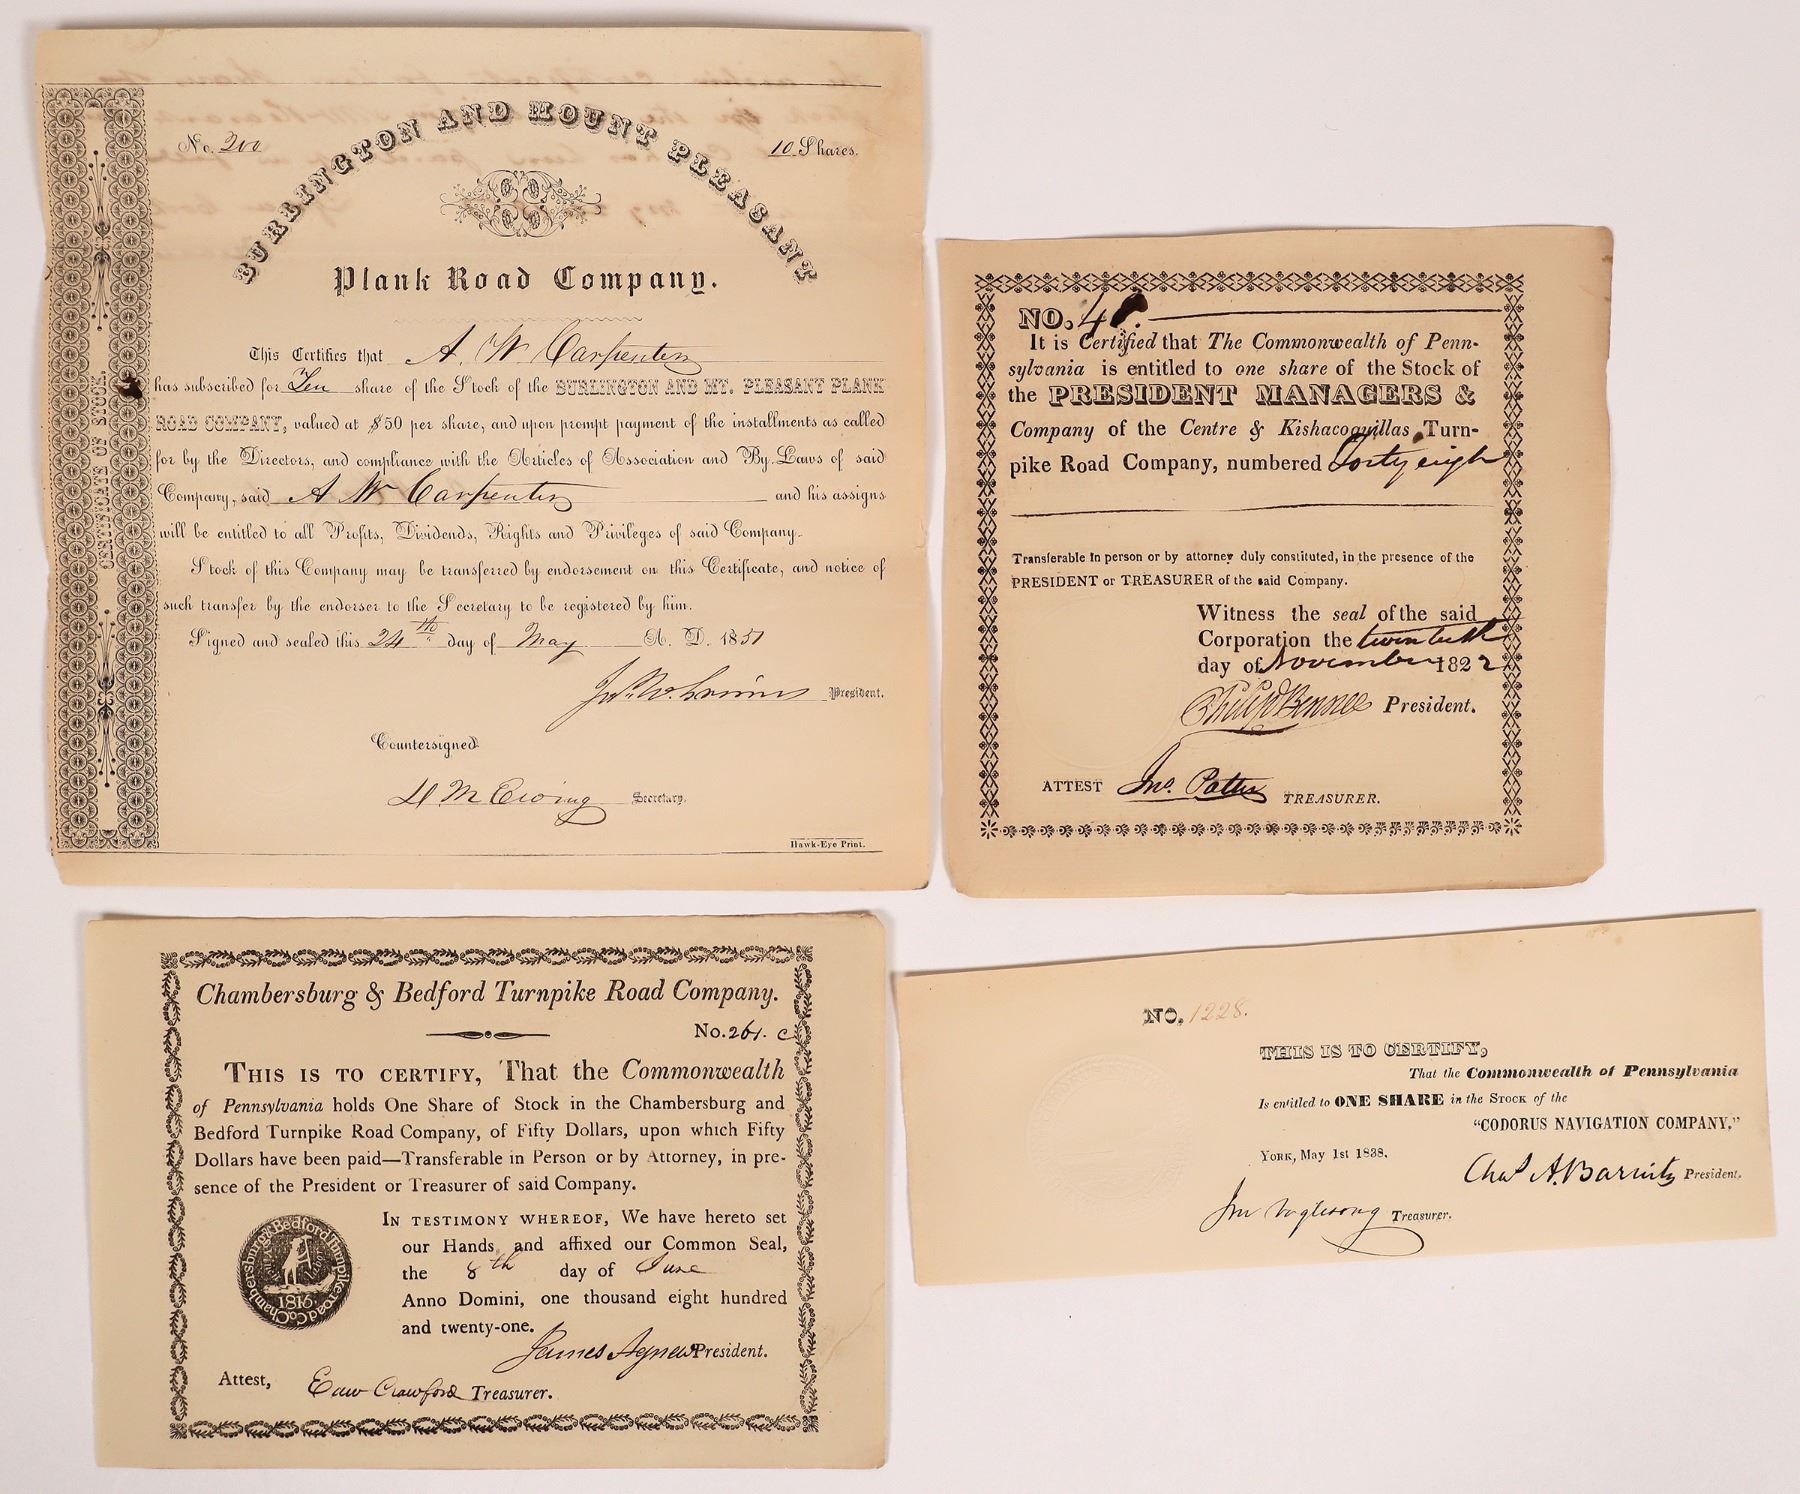 No. 200
10 Shares.
BURLINGTON AND MOUNT PLEASANT
Plank Road Company.
This Certifies that A. W. Carpenter
has subscribed for Ten share of the Stock of the BURLINGTON AND MT. PLEASANT PLANK
ROAD COMPANY, valued at $50 per share, and upon prompt payment of the installments as called
for by the Directors, and compliance with the Articles of Association and By-Laws of said
Company, said A W Carpenter and his assigns
will be entitled to all Profits, Dividends, Rights and Privileges of said Company.
Stock of this Company may be transferred by endorsement on this Certificate, and notice of
such transfer by the endorser to the Secretary to be registered by him.
Signed and sealed this 24th day of May A. D. 1851
President.
Countersigned
Secretary.
Hawk-Eye Print.
CERTIFICATE OF STOCK.
NO. 48.
It is Certified that The Commonwealth of Penn-
sylvania is entitled to one share of the Stock of
the PRESIDENT MANAGERS &
Company of the Centre & Kishacoquillas Turn-
pike Road Company, numbered Forty eight
Transferable in person or by attorney duly constituted, in the presence of the
PRESIDENT or TREASURER of the said Company.
Witness the seal of the said
Corporation the twentieth
day of November 1822
President.
ATTEST Jno. Potter TREASURER.
Chambersburg & Bedford Turnpike Road Company.
No. 261. C
THIS IS TO CERTIFY, That the Commonwealth
of Pennsylvania holds One Share of Stock in the Chambersburg and
Bedford Turnpike Road Company, of Fifty Dollars, upon which Fifty
Dollars have been paid—Transferable in Person or by Attorney, in pre-
sence of the President or Treasurer of said Company.
IN TESTIMONY WHEREOF, We have hereto set
our Hands, and affixed our Common Seal,
the 8th day of June
Anno Domini, one thousand eight hundred
and twenty-one.
James Agnew President.
Attest, Edw Crawford Treasurer.
Chambersburg & Bedford Turnpike road Co
1816
NO. 1228.
THIS IS TO CERTIFY,
That the Commonwealth of Pennsylvania
Is entitled to ONE SHARE in the STOCK of the
"CODORUS NAVIGATION COMPANY."
YORK, May 1st 1838.
Chas A. Barnitz President.
Treasurer.